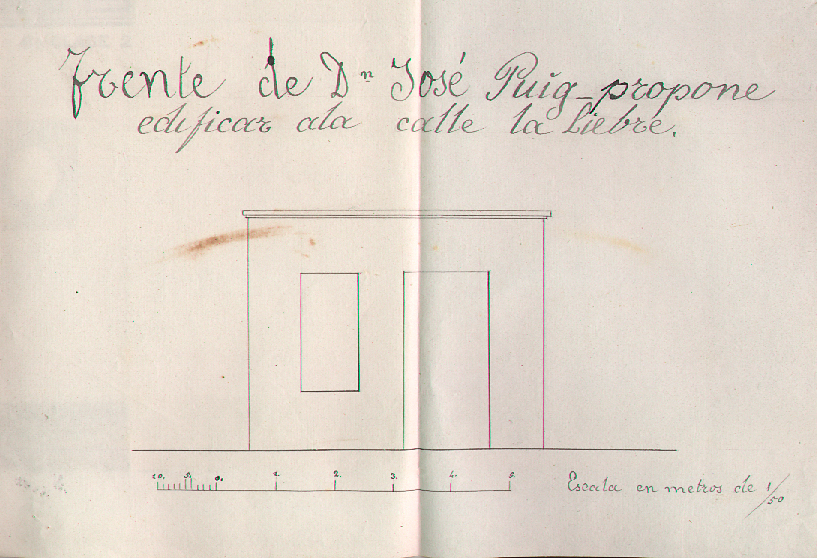 Frente de Dn José Puig propone
edificar ala calle la Liebre.
10. 5. 0. 1 2. 3. 4. 5.
Escala en metros de 1/50